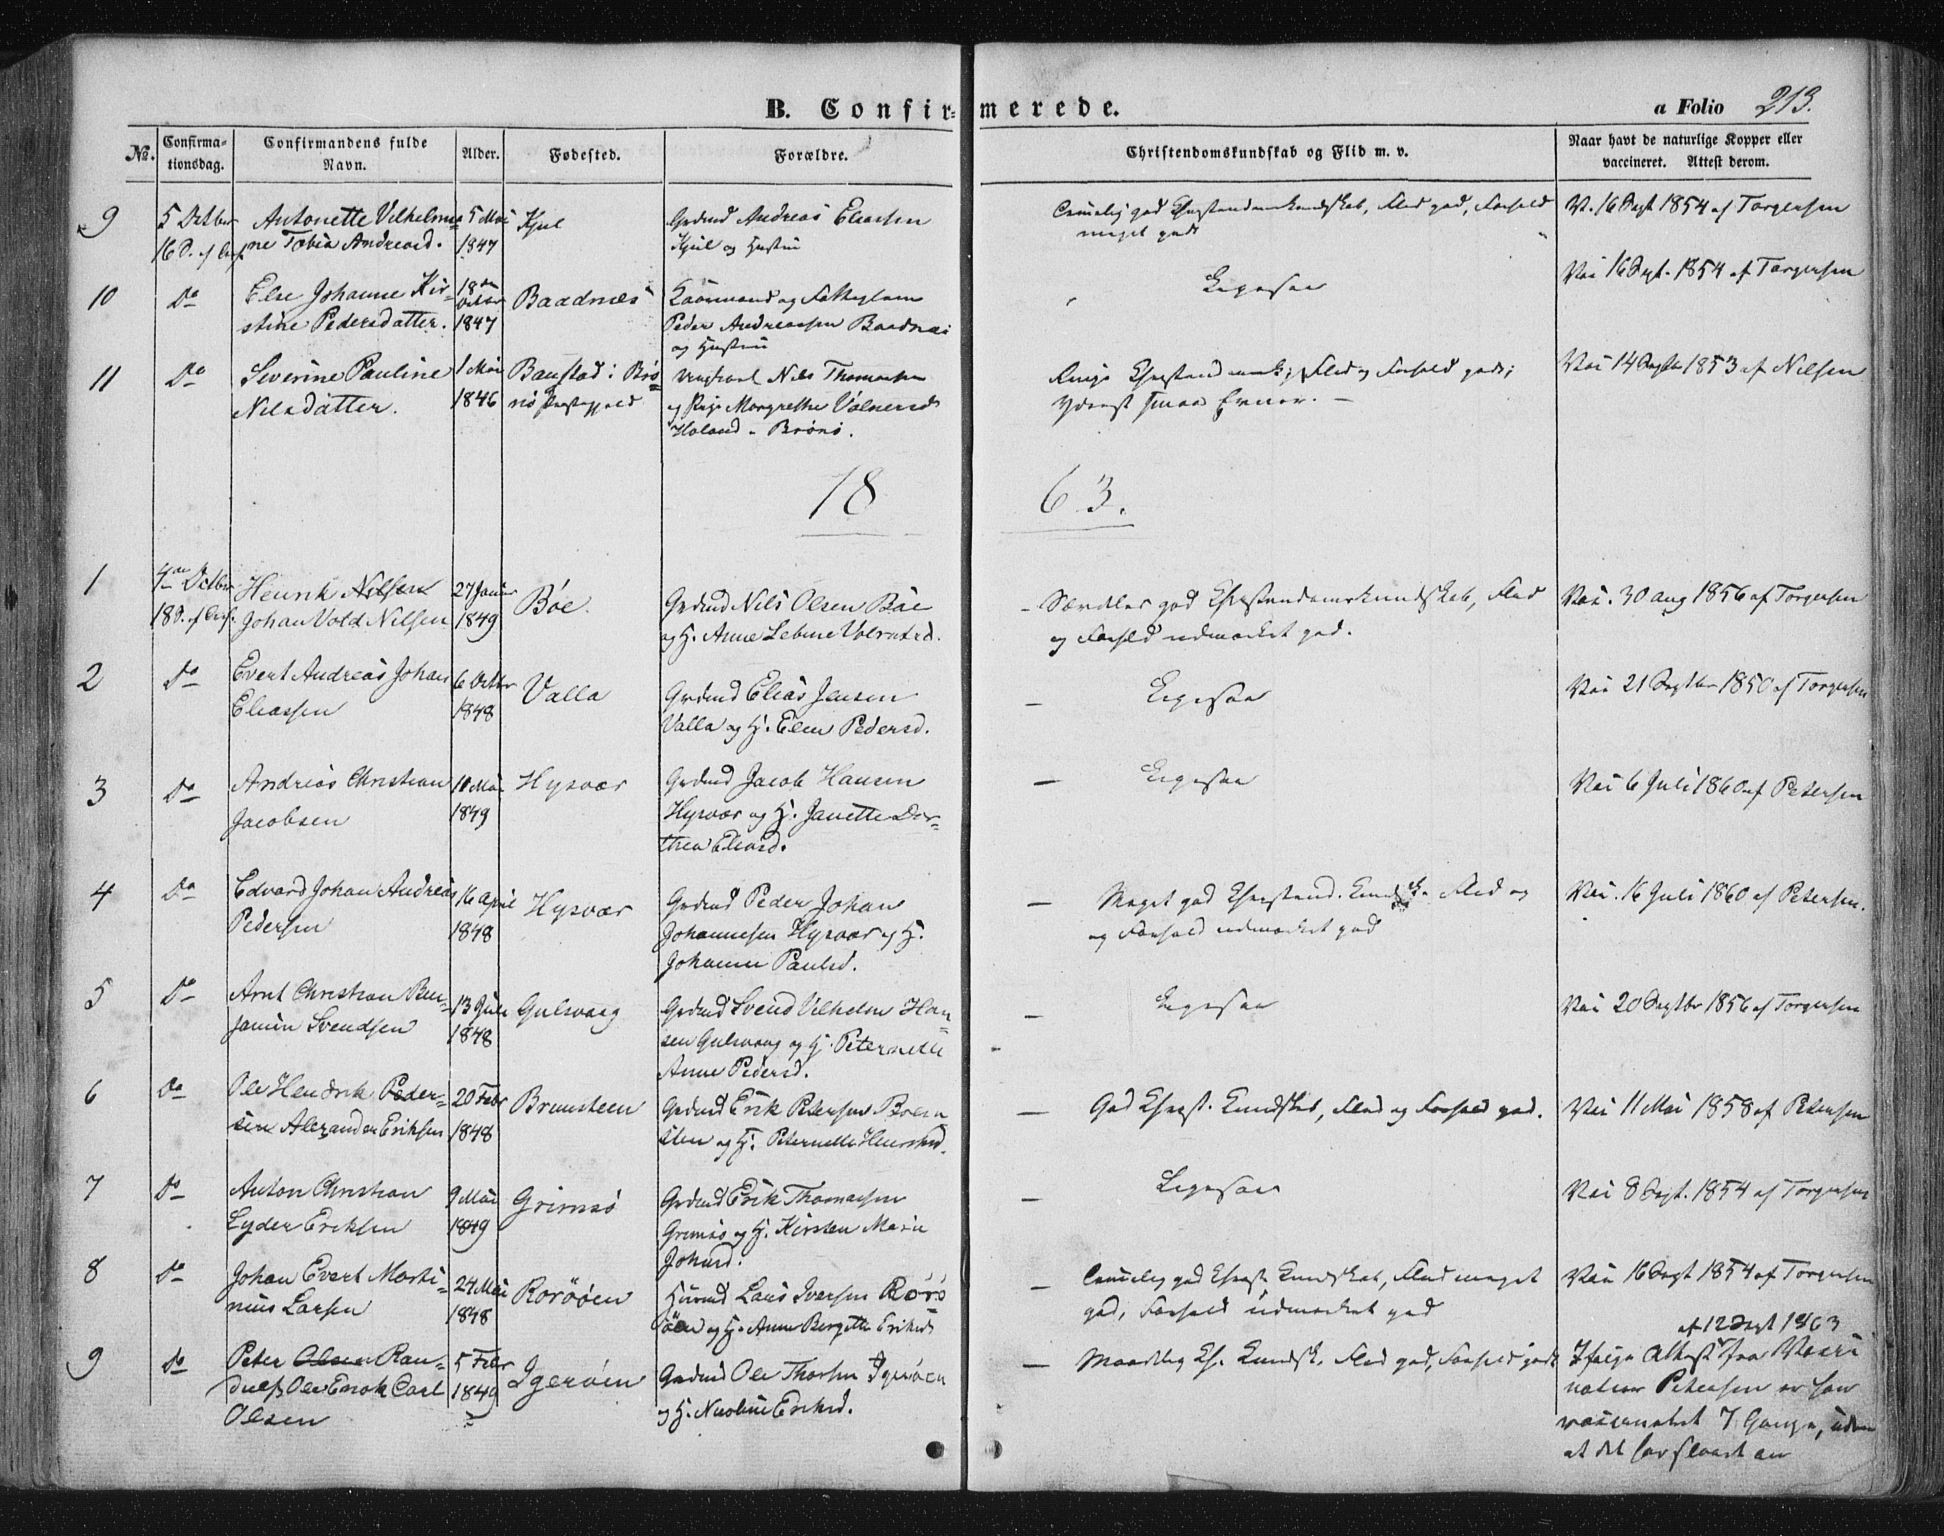 B. Confirmerede.
a Folio 213.
No. Confirmationsdag. Confirmandens fulde Navn. Alder. Fødested. Forældre. Christendomskundskab og Flid m. v. Naar havt de naturlige Kopper eller vaccineret. Attest derom.
9 5 Octbr Antonette Vilhelmi- 5 Mai Kjul Grdmd Andreas Eliassen god Christendomskundskab, Flid god, Forhold V. 16 Sept 1854 af Torgersen
16 S. f. ne Tobia Andreasd. 1847 Kjul og Hustru meget godt
10 Do Else Johanne Kir- 18de Octbr Baadnes og Ligesaa Vac 16 Sept. 1854 af Torgersen
stine Pedersdatter. 1847 Peder Andreassen Baadnes
og Hustru
11 Do Severine Pauline 1 Mai Baustad i Brø- Nils Thomassen Ringe Flid og Forhold godt; Vac 14 Septbr 1853 af Nilsen
Nilsdatter. 1846 nø Præstegjeld og Pige Margrethe Volnersd Yderst smaa Evner. —
Holand - Brønø.
18 63.
1 4de Octbr Henrik Nilsen 27 Januar Bøe. Grdmd Nils Olsen Bøe - Særdeles god Christendomskundskab, Flid Vac. 30 aug 1856 af Torgersen
18 S. f. Johan Vold Nilsen 1849 og H. Anne Lebine Volnersd. og Forhold udmærket god.
2 Do Evert Andreas Johan 6 Octbr Valla Grdmd Elias Jensen — Ligesaa Vac 21 Septbr 1850 af Torgersen
Eliassen 1848 Valla og H. Elen Pedersd.
3 Do Andreas Christian 10 Mai Hysvær Grdmd Jacob Hansen — Ligesaa Vac 6 Juli 1860 af Petersen
Jacobsen 1849 Hysvær og H. Janette Dor-
thea Eliasd.
4 Do Edvard Johan Andreas 16 April Hysvær Grdmd Peder Johan — Meget god Christend. Kundsk. Flid og Vac. 16 Juli 1860 af Petersen.
Pedersen 1848 Johannesen Hysvær og H. og Forhold udmærket god
Johanna Paulsd.
5 Do Arnt Christian Ben- 13 Juli Gulsvaag Grdmd Svend Vilhelm Han- — Ligesaa Vac 20 Septbr 1856 af Torgersen
jamin Svendsen 1848 sen Gulsvaag og H. Peternelle
Anne Pedersd.
6 Do Ole Hendrik Peder- 20 Febr Brunsteen Grdmd Erik Petersen Bruun — God Christ. Kundskab, Flid og Forhold god. Vac 11 Mai 1858 af Petersen
sen Alexander Eriksen 1848 sten og H. Peternelle
7 Do Anton Christian 9 Mai Grimsø Grdmd Erik Thomassen — Ligesaa Vac 8 Sept. 1854 af Torgersen
Lyder Eriksen 1849 Grimsø og H. Kirsten Marie
Johnsd.
8 Do Johan Evert Marti- 24 Mai Rorøöen Huusmd Lars Iversen Rørø — god Christ. Kundskab, Flid meget Vac 16 Sept 1854 af Torgersen
nius Larsen 1848 öen og H. Anne Bergitte Eriksd god, Forhold udmærket god
af 12 Sept 1863
9 Do Peter Olsen Ran- 5 Febr Igerøen Grdmd Ole Thorsen Igerøen — Maadelig Ch. Kundsk. Flid god, Forhold godt Ifølge Attest fra Vacci
dulf Ole Enok Carl 1849 og H. Nicoline Eriksd. natoer Petersen er han
Olsen vaccineret 7 Gange, uden
at det har slaaet an